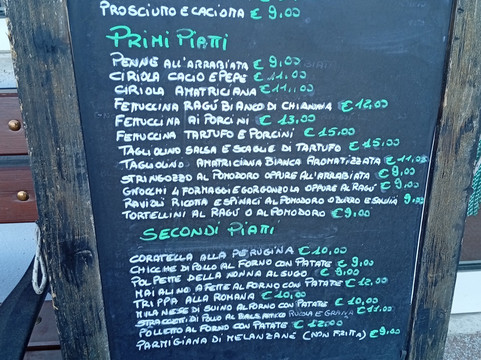 PROSCIUTTO E CACIOTTA € 9,00
PRIMI PIATTI
PENNE ALL'ARRABIATA € 9,00
CIRIOLA CACIO E PEPE € 11,00
CIRIOLA AMATRICIANA € 11,00
FETTUCCINA RAGÚ BIANCO DI CHIANINA € 12,00
FETTUCCINA AI PORCINI € 13,00
FETTUCCINA TARTUFO E PORCINI € 15,00
TAGLIOLINO SALSA E SCAGLIE DI TARTUFO € 15,00
TAGLIOLINO AMATRICIANA BIANCA AROMATIZZATA € 11,00
STRINGOZZO AL POMODORO OPPURE ALL'ARRABIATA € 9,00
GNOCCHI 4 FORMAGGI E GORGONZOLA OPPURE AL RAGÚ € 9,00
RAVIOLI RICOTTA E SPINACI AL POMODORO O BURRO E SALVIA 9,00
TORTELLINI AL RAGÚ O AL POMODORO € 9,00
SECONDI PIATTI
CORATELLA ALLA PERUGINA € 10,00
CHICCHE DI POLLO AL FORNO CON PATATE € 9,00
POLPETTE DELLA NONNA AL SUGO € 9,00
MAIALINO A FETTE AL FORNO CON PATATE € 12,00
TRIPPA ALLA ROMANA € 10,00
MILANESE DI SUINO AL FORNO CON PATATE € 10,00
STRACCETTI DI POLLO AL BALSAMICO RUCOLA E GRANA € 11,00
POLLETTO AL FORNO CON PATATE € 12,00
PARMIGIANA DI MELANZANE (NON FRITTA) € 9,00